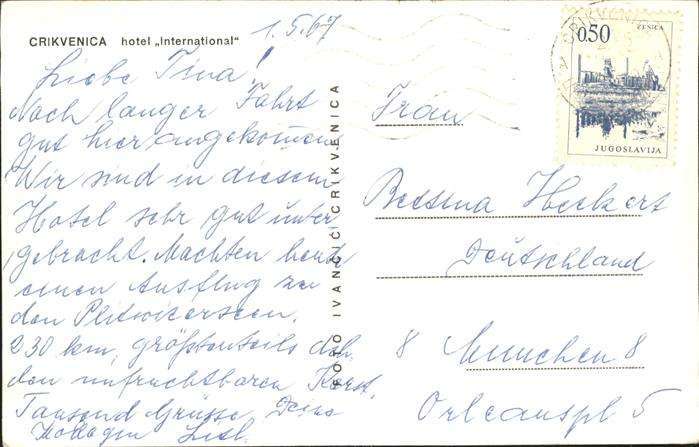 CRIKVENICA hotel „International"
1.5.67
Liebe Tina!
nach langer Fahrt
gut hier angekommen
Wir sind in diesem
Hotel sehr gut unter
gebracht. Machten heute
einen Ausflug zu
den Plitwitzerseen.
230 km, größtenteils dch.
den unfruchtbaren Karst.
Tausend Grüsse
FOTO IVANČIĆ CRIKVENICA
CRIKVENICA
ZENICA
0.50
JUGOSLAVIJA
Frau
Bettina Heckert
Deutschland
8 München 8
Orleanspl 5